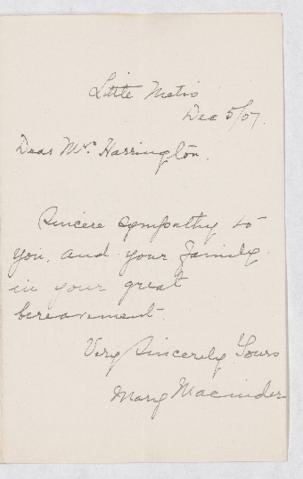 Little Metis
Dec 5/07.
Dear Mrs Harrington.
Sincere sympathy to
you, and your family
in your great
bereavement.
Very Sincerely Yours
Mary Macinder